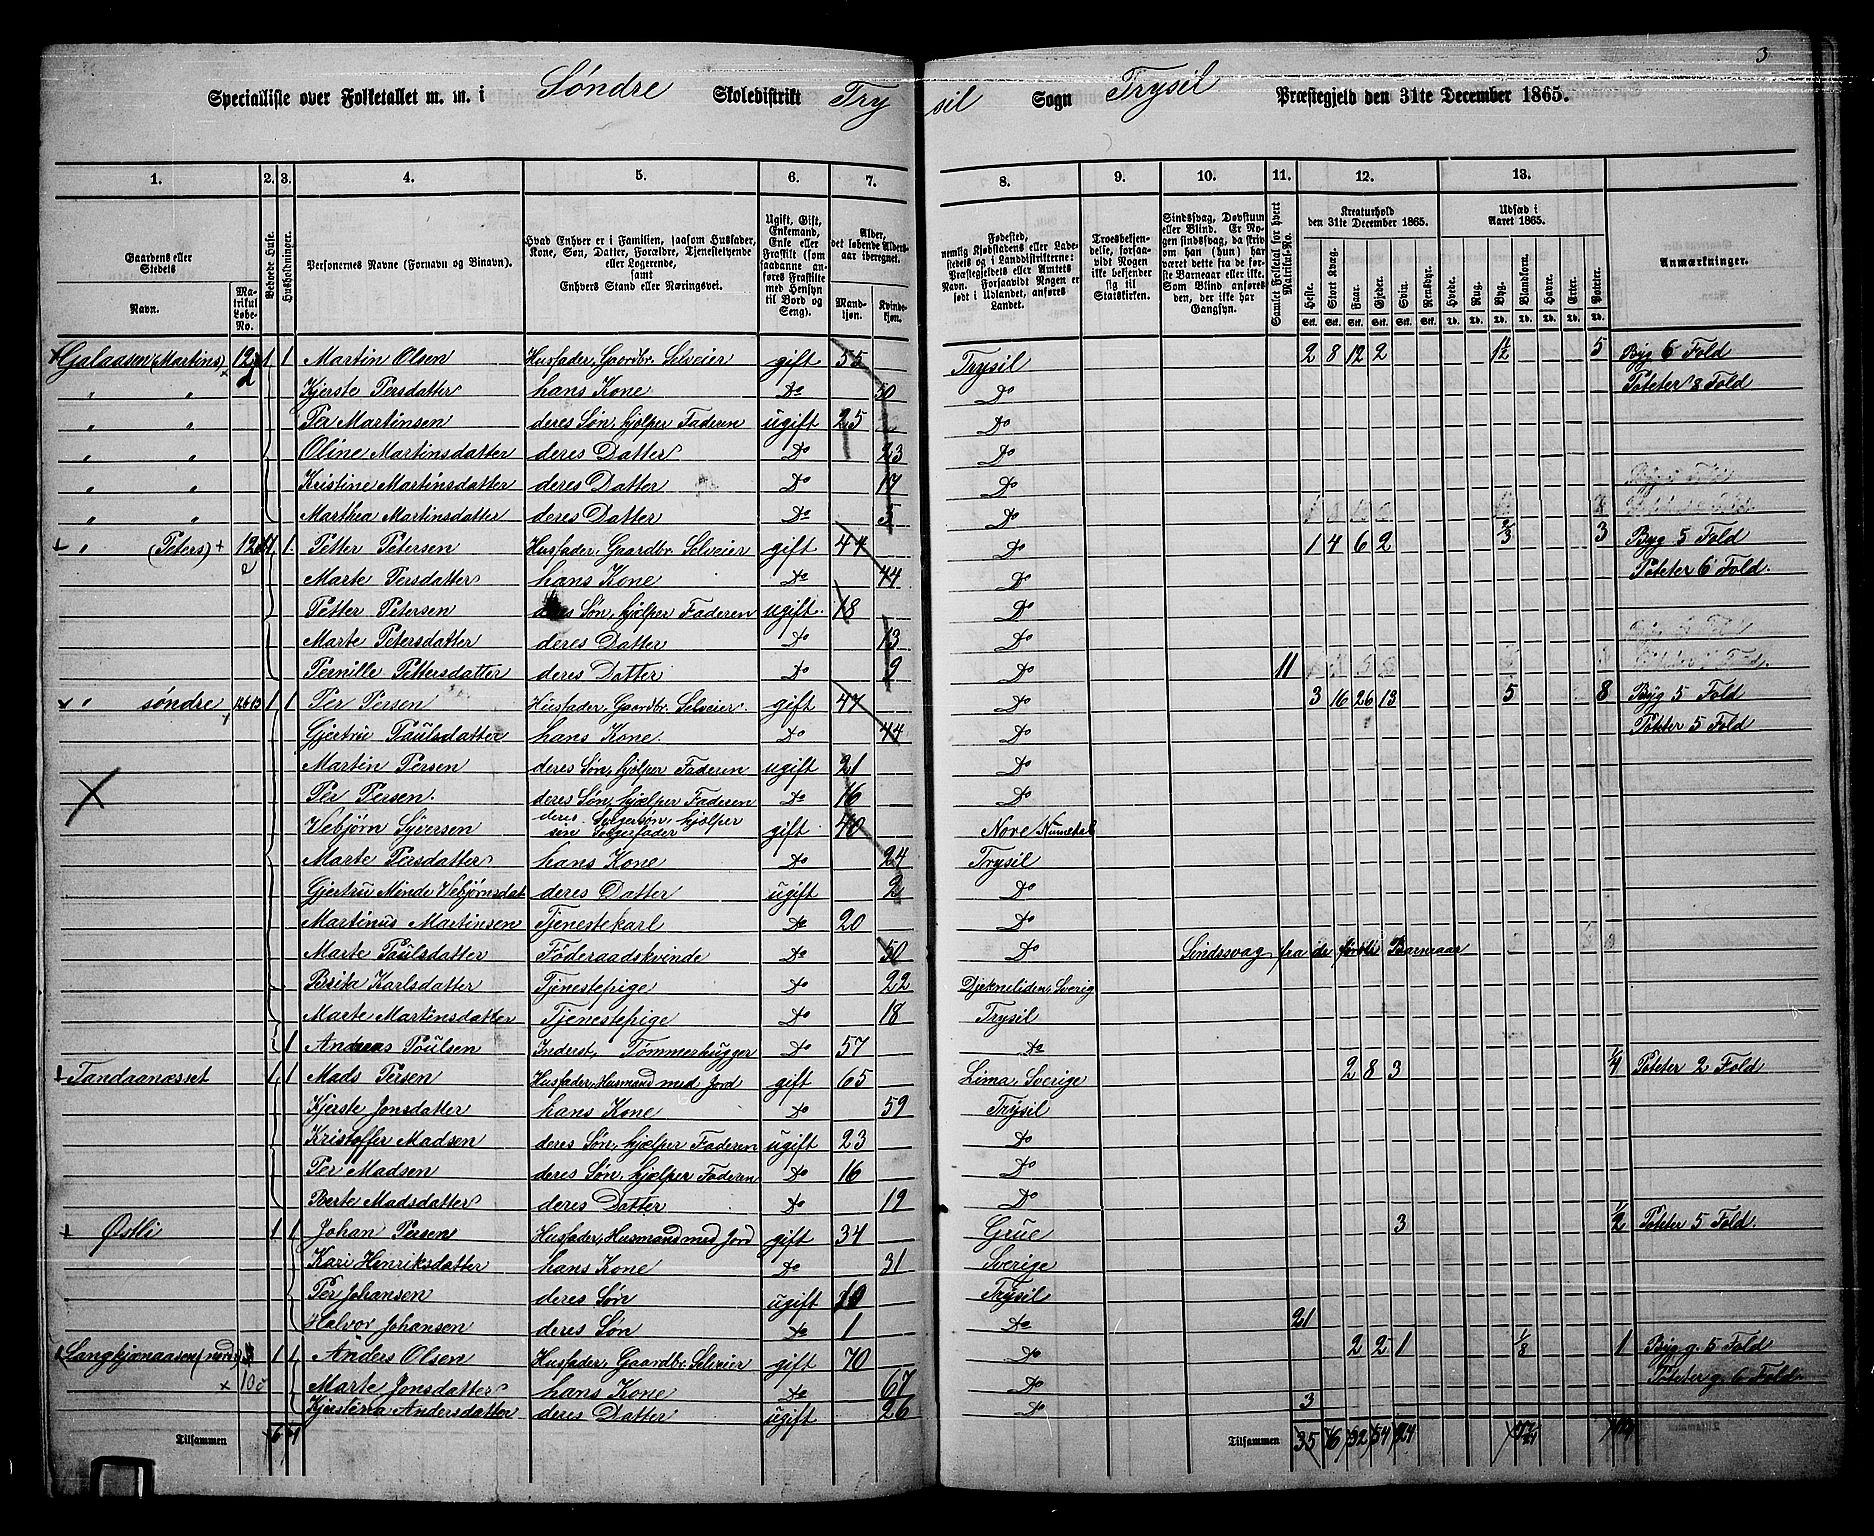 3
Specialliste over Folketallet m. m. i Søndre Skoledistrikt Trysil Sogn Trysil Præstegjeld den 31te December 1865.
1. 2. 3. 4. 5. 6. 7. 8. 9. 10. 11. 12. 13.
Gaardenes eller Stedets
Navn. Matrikul Løbe-No.
Beboede Huse.
Husholdninger.
Personernes Navne (Fornavn og Binavn).
Hvad Enhver er i Familien, saasom Husfader, Kone, Søn, Datter, Forældre, Tjenestetyende eller Logerende, samt Enhvers Stand eller Næringsvei.
Ugift, Gift, Enkemand, Enke eller Fraskilt (som saadanne anføres Fraskilte med Hensyn til Bord og Seng).
Alder, det løbende Alders-aar iberegnet.
Mandkjøn. Kvindekjøn.
Fødested, nemlig Kjøbstadens eller Ladestedets og i Landdistrikterne: Præstegjeldets eller Amtets Navn. Forsaavidt Nogen er født i Udlandet, anføres Landet.
Troesbekjendelse, forsaavidt Nogen ikke bekjender sig til Statskirken.
Sindssvag, Døvstum eller Blind. Er Nogen sindssvag, da skrives om han (hun) har været dette fra de første Barneaar eller ikke. Som Blind anføres den, der ikke har Gangsyn.
Samlet Folketal for hvert Matrikul-No.
Kreaturhold den 31te December 1865.
Heste. Stort Kvæg. Faar. Gjeder. Svin. Rensdyr.
Udsæd i Aaret 1865.
Hvede. Rug. Byg. Blandkorn. Havre. Erter. Poteter.
Anmærkninger.
Galaasen (Martins) 1 1 Martin Olsen Husfader, Gaardbr. Selveier gift 55 Trysil 2 8 12 2 5 Byg 6 Fold
" " Kjerste Persdatter hans Kone Do 50 Do Poteter 8 Fold
" " Per Martinsen deres Søn, hjelper Faderen ugift 25 Do
" " Oline Martinsdatter deres Datter Do 23 Do
" " Kristine Martinsdatter deres Datter Do 17 Do
" " Marthea Martinsdatter deres Datter Do 5 Do
" (Peters) 1 1 Petter Petersen Husfader, Gaardbr. Selveier gift 47 Do 1 4 6 2 2/3 3 Byg 5 Fold
Marte Persdatter hans Kone Do 44 Do Poteter 6 Fold.
Petter Petersen deres Søn, hjælper Faderen ugift. 18 Do
Marte Petersdatter deres Datter Do 13 Do
Pernille Pettersdatter deres Datter Do 9 Do 11
" søndre 1 1 Per Persen Husfader, Gaardbr. Selveier. gift 47 Do 3 16 26 13 5 8 Byg 5 Fold
Gjertru Paulsdatter hans Kone. Do 44 Do Poteter 5 Fold
Martin Persen deres Søn, hjelper Faderen ugift 21 Do
Per Persen. deres Søn, hjælper Faderen Do 16 Do
Vebjørn Syversen deres Svigersøn, hjelper sin Svigerfader gift 40 Nore Numedal
Marte Persdatter hans Kone Do 24 Trysil
Gjertru Minde Vebjørnsdat deres Datter ugift 2 Do
Martinus Martinsen Tjenestekarl Do 20 Do
Marte Paulsdatter Føderaadskvinde Do 50 Do Sindssvag fra de første Barneaar
Brita Karlsdatter Tjenestepige Do 22 Sverig
Marte Martinsdatter Tjenestepige Do 18 Trysil
1 Andreas Poulsen Inderst, Tømmerhugger Do 57 Do
Tandaanæsset 1 1 Mads Persen Husfader, Husmand med Jord gift 65 Lima, Sverige 2 8 3 1/4 Poteter 2 Fold
Kjerste Jonsdatter hans Kone Do 59 Trysil
Kristoffer Madsen deres Søn, hjælper Faderen ugift 23 Do
Per Madsen deres Søn, hjelper Faderen Do 16 Do
Berte Madsdatter deres Datter Do 19 Do
Østli 1 1 Johan Persen Husfader, Husmand med Jord gift 34 Grue 3 1/2 Poteter 5 Fold.
Kari Henriksdatter hans Kone Do 31 Sverige
Per Johansen deres Søn ugift Trysil
Halvor Johansen deres Søn Do 1 Do 21
1 1 Anders Olsen Husfader, Gaardbr. Selveier gift 70 Do 2 2 1 1/8 1 Byg g. 5 Fold
Marte Jonsdatter hans Kone Do 67 Do Poteter g. 6 Fold.
Andersdatter deres Datter ugift 26 Do 3
Tilsammen 6
Tilsammen 35 6